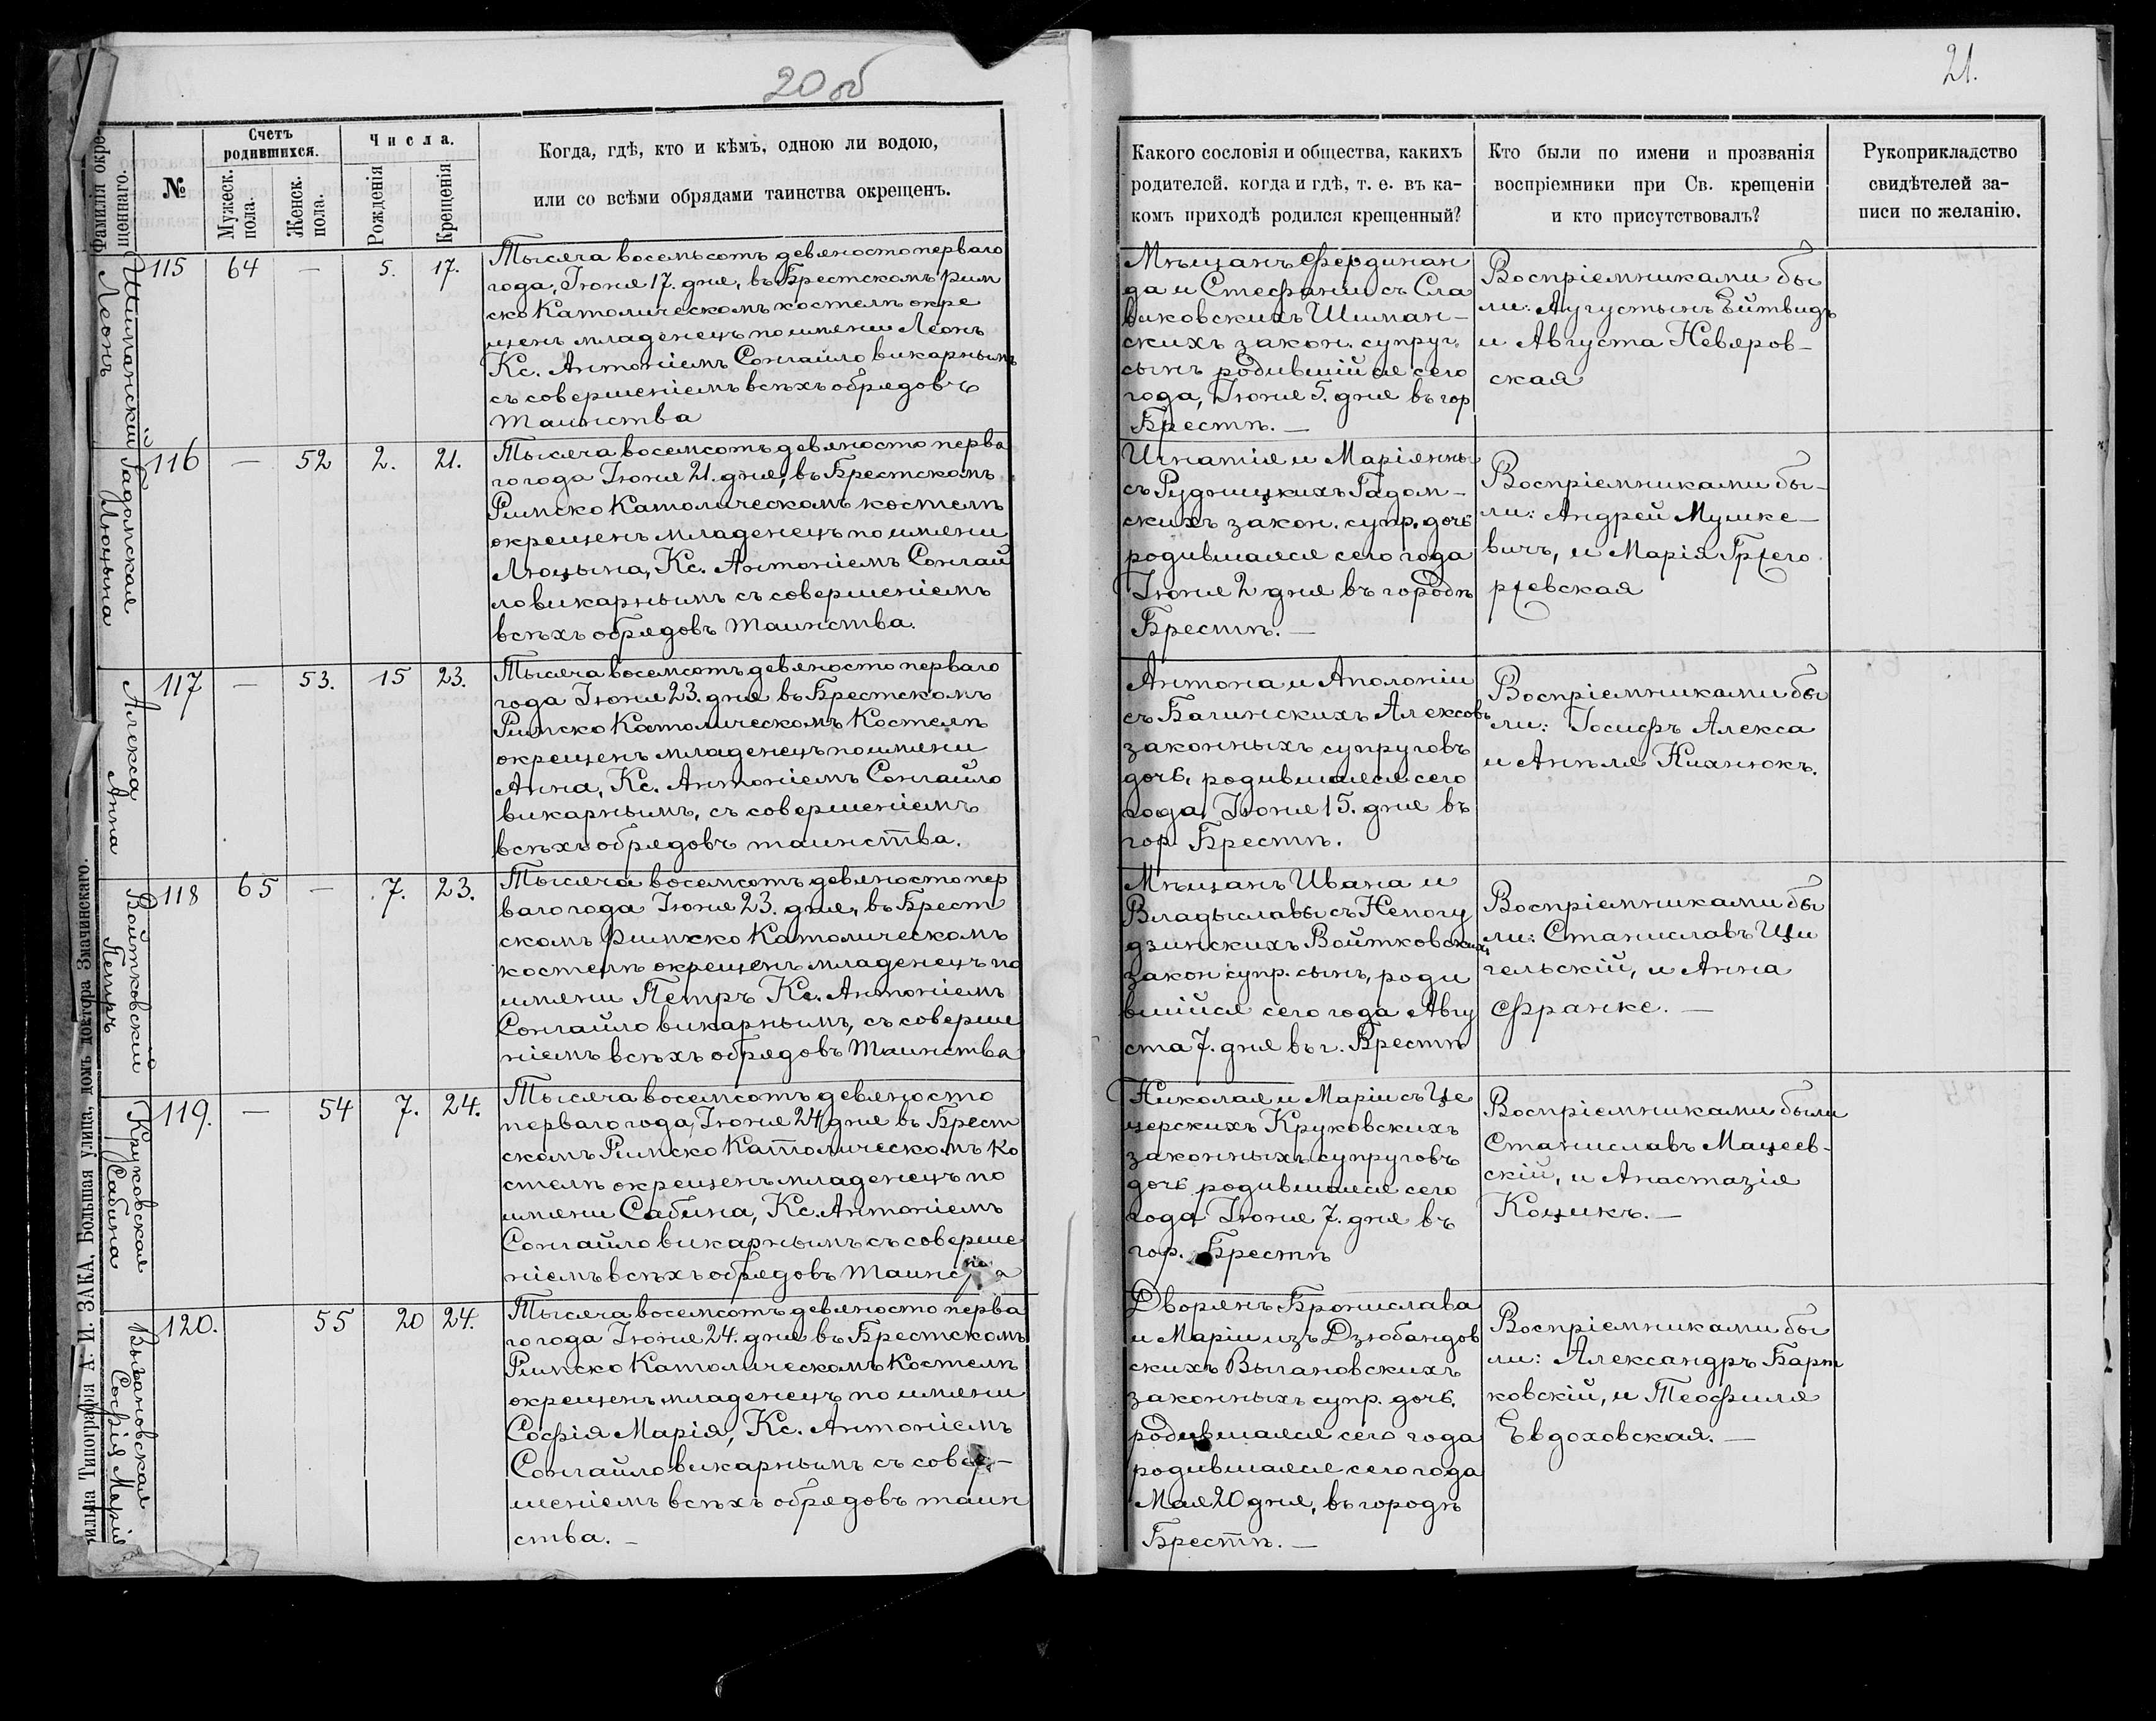 20 об
21.
Фамилія окре-
щеннаго.
№
Счетъ
родившихся.
Мужеск.
пола.
Женск.
пола.
Числа.
Рожденія
Крещенія
Когда, гдѣ, кто и кѣмъ, одною ли водою,
или со всѣми обрядами таинства окрещенъ.
Какого сословія и общества, какихъ
родителей. когда и гдѣ, т. е. въ ка-
комъ приходѣ родился крещенный?
Кто были по имени и прозванія
воспріемники при Св. крещеніи
и кто присутствовалъ?
Рукоприкладство
свидѣтелей за-
писи по желанію.
Шиманскій
Леонъ
115 64 — 5. 17.
Тысяча восемьсотъ девяносто перваго
года, Іюня 17. дня, въ Брестскомъ Рим
ско Католическомъ костелѣ окре
щенъ младенецъ по имени Леонъ
Кс. Антоніемъ Сонгайло викарнымъ
съ совершеніемъ всѣхъ обрядовъ
таинства
Мѣщанъ Фердинан
да и Стефаніи съ Сла
виковскихъ Шиман-
скихъ закон. супруг.
сынъ родившійся сего
года, Іюня 5. дня въ гор
Брестѣ. —
Воспріемниками бы
ли: Аугустынъ Ейтвидъ
и Августа Невяров-
ская
Гадомская
Люцына
116 — 52 2. 21.
Тысяча восемсотъ девяносто перва
го года Іюня 21. дня, въ Брестскомъ
Римско Католическомъ костелѣ
окрещенъ младенецъ по имени
Люцына, Кс. Антоніемъ Сонгай
ло викарнымъ съ совершеніемъ
всѣхъ обрядовъ таинства.
Игнатія и Маріянны
съ Рудницкихъ Гадом-
скихъ закон. супр. дочь
родившаяся сего года
Іюня 2 дня въ городѣ
Брестѣ. —
Воспріемниками бы-
ли: Андрей Мушке-
вичъ, и Марія Гржего
ржевская
Алекса
Анна
117 — 53. 15 23.
Тысяча восемсотъ девяносто перваго
года Іюня 23. дня въ Брестскомъ
Римско Католическомъ Костелѣ
окрещенъ младенецъ по имени
Анна, Кс. Антоніемъ Сонгайло
викарнымъ, съ совершеніемъ
всѣхъ обрядовъ таинства.
Антона и Аполоніи
съ Багинскихъ Алексовъ
законныхъ супруговъ
дочь, родившаяся сего
года, Іюня 15. дня въ
гор. Брестѣ.
Воспріемниками бы
ли: Іосифъ Алекса
и Анѣля Нихнюкъ.
Войтковскій
Петръ
118 65 — 7. 23.
Тысяча восемсотъ девяносто пер
ваго года Іюня 23. дня, въ Брест
скомъ Римско Католическомъ
костелѣ окрещенъ младенецъ по
имени Петръ Кс. Антоніемъ
Сонгайло викарнымъ, съ соверше
ніемъ всѣхъ обрядовъ таинства
Мѣщанъ Ивана и
Владыславы съ Непогу
дзинскихъ Войтковскихъ
закон супр. сынъ, роди
вшійся сего года Авгу
ста 7. дня въ г. Брестѣ
Воспріемниками бы
ли: Станиславъ Щи
гельскій, и Анна
Франке. —
Круковская
Сабина
119. — 54 7. 24.
Тысяча восемсотъ девяносто
перваго года, Іюня 24 дня въ Брест
скомъ Римско Католическомъ Ко
стелѣ окрещенъ младенецъ по
имени Сабина, Кс. Антоніемъ
Сонгайло викарнымъ съ соверше
ніемъ всѣхъ обрядовъ
Николая и Маріи съ Це
церскихъ Круковскихъ
законныхъ супруговъ
дочь родившаяся сего
года Іюня 7. дня въ
гор. Брестѣ
Воспріемниками были
Станиславъ Мацеев-
скій, и Анастазія
Коцикъ. —
Выгановская
Софія Марія
120. 55 20 24.
Тысяча восемсотъ девяносто перва
го года Іюня 24. дня въ Брестскомъ
Римско Католическомъ Костелѣ
окрещенъ младенецъ по имени
Софія Марія, Кс. Антоніемъ
Сонгайло викарнымъ съ совер-
шеніемъ всѣхъ обрядовъ таин
ства. —
Дворянъ Бронислава
и Маріи изъ Дзюбандов
скихъ Выгановскихъ
законныхъ супр. дочь.
родившаяся сего года
родившаяся сего года
Мая 20 дня, въ городѣ
Брестѣ. —
Воспріемниками бы
ли: Александръ Барт
ковскій, и Теофиля
Евдоховская. —
Вильна Типографія А. И. ЗАКА, Большая улица, домъ доктора Змачинскаго.